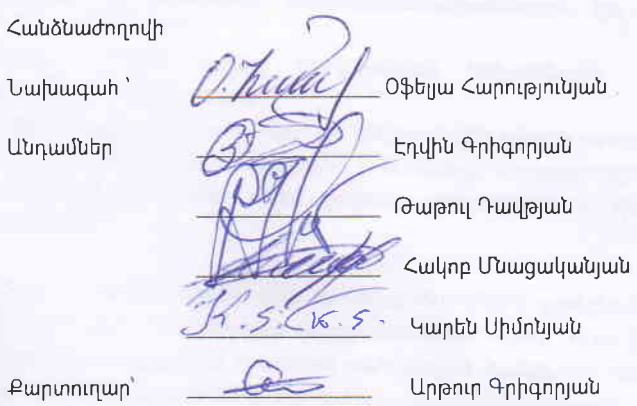 Հանձնաժողովի
Նախագահ ՝ Օֆելյա Հարությունյան
Անդամներ Էդվին Գրիգորյան
Թաթուլ Դավթյան
Հակոբ Մնացականյան
K.S. Կարեն Սիմոնյան
Քարտուղար՝ Արթուր Գրիգորյան